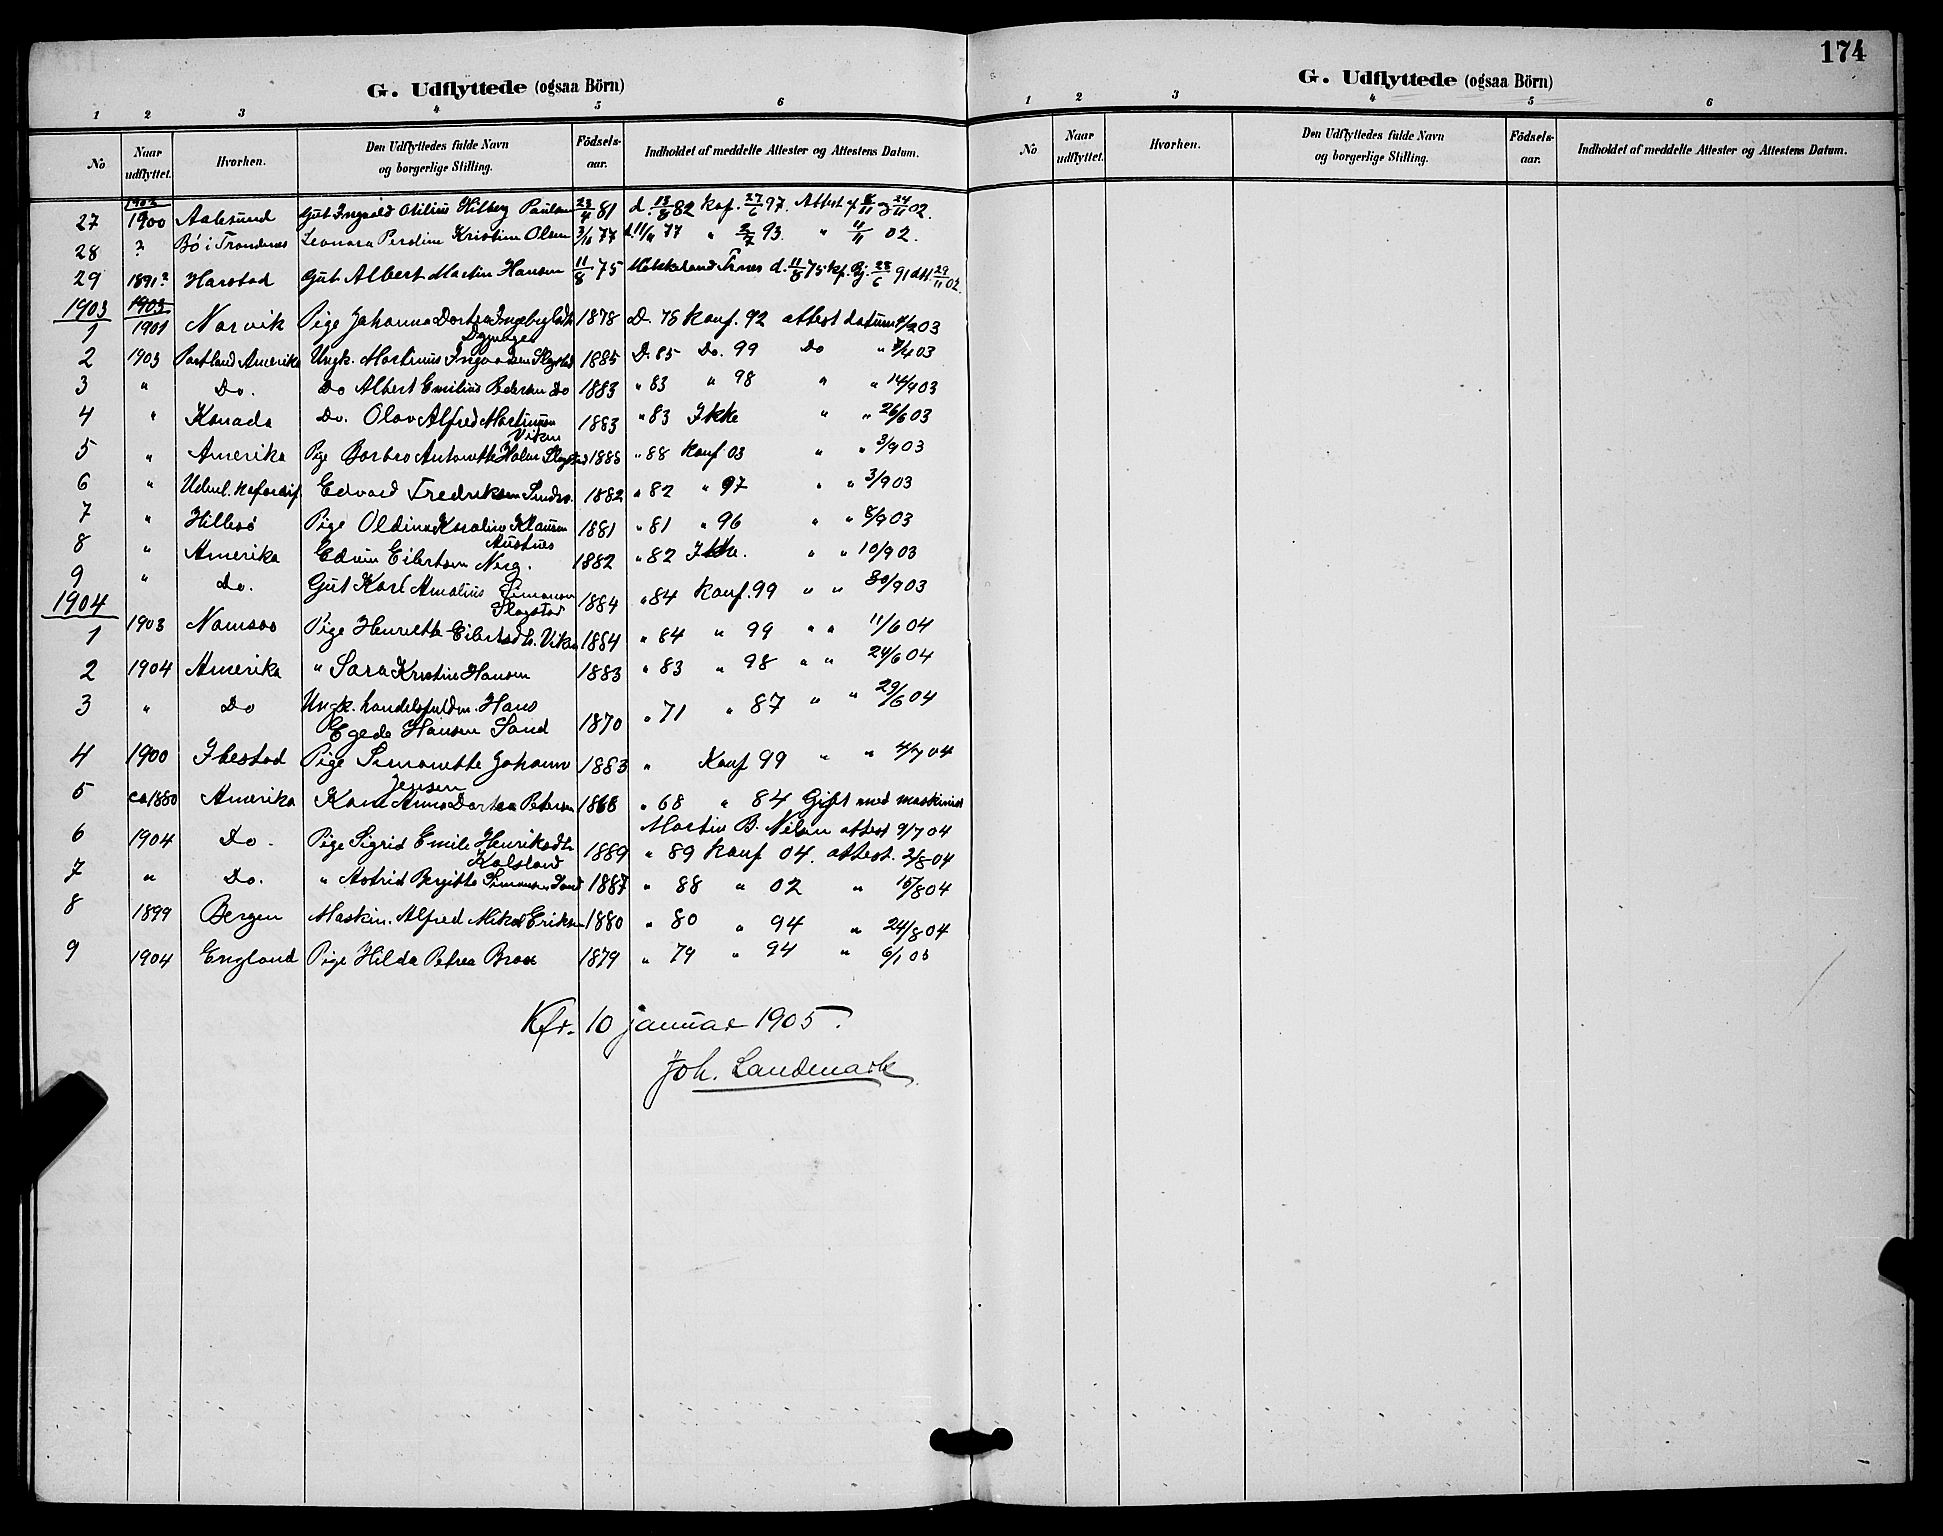 174
G. Udflyttede (ogsaa Börn)
1 2 3 4 5 6
No Naar udflyttet. Hvorhen. Den Udflyttedes fulde Navn og borgerlige Stilling. Födsels-aar. Indholdet af meddelte Attester og Attestens Datum.
1902
27 1900 Aalesund Gut Ingvald Otilius Hilberg Paulsen 23/4 81 d. 13/8 82 kof. 27/6 97. Attest 24/11 02.
28 ? Bö i Trondenes Leonora Perdine Kristine Olsen 3/10 77 77 " 2/7 93. " 4/11 02.
29 1891? Harstad Gut Albert Martin Hansen 11/8 75 d. 11/8 75 kf. 28/6 91 d. 29/11 02.
1903 1903
1 1901 Narvik Pige Johanna Dortea 1878 D. 78 Konf. 92 attest datum 03
2 1903 Portland Amerika Ungk. Martinus Slagstad 1885 D. 85 Do. 99 Do " 03
3 " Do. Do Albert Emilius Pedersen Do 1883 " 83 " 98 " " 14/4 03
4 " Kanada Do. Olav Alfred Martinsen Viken 1883 " 83 Ikke " " 26/6 03
5 " Amerika Pige Borbro Antonette Slagstad 1885 " 88 Konf 03 " " 3/9 03
6 " Edvard Fredriksen 1882 " 82 " 97 " " 3/9 03
7 " Hillesö Pige Oldine Karoline Klausen Austnes 1881 " 81 " 96 " " 8/9 03
8 " Amerika Edvin Eilertsen 1882 " 82 Ikke. " " 10/9 03
9 " Do. Gut Karl Amalius Simonsen Slagstad 1884 " 84 Konf. 99 " " 30/9 03
1904
1 1903 Namsos Pige Henriette Eilertsdtr. Viken 1884 " 84 " 99 " " 11/6 04
2 1904 Amerika " Sara Kristine Hansen 1883 " 83 " 98 " " 24/6 04
3 " Do Ungk. handelsfuldm. Hans
Egede Hansen Sand 1870 " 71 " 87 " " 29/6 04
4 1900 Ibestad Pige Simonette Johanne Jensen 1883 " Konf 99 " " 4/7 04
5 ca 1880 Amerika Kone Anna Dortea Petersen 1868 " 68 " 84 Gift med maskinist
Martin B. Nilsen attest 9/7 04
6 1904 Do. Pige Sigrid Emile Henriksdtr. Kalsland 1889 " 89 Konf 04. attest. 2/8 04
7 " Do. " Astrid Bergitte Simonsen Sand 1887 " 88 " 02 " 15/8 04
8 1899 Bergen Maskin. Alfred Mikal Eriksen 1880 " 80 " 94 " 24/8 04
9 1904 England Pige Hilda Petrea Brox 1879 " 79 " 94 " 6/1 05
Kfr. 10 januar 1905.
Joh. Landmark
G. Udflyttede (ogsaa Börn)
1 2 3 4 5 6
No Naar udflyttet. Hvorhen. Den Udflyttedes fulde Navn og borgerlige Stilling. Födsels-aar. Indholdet af meddelte Attester og Attestens Datum.